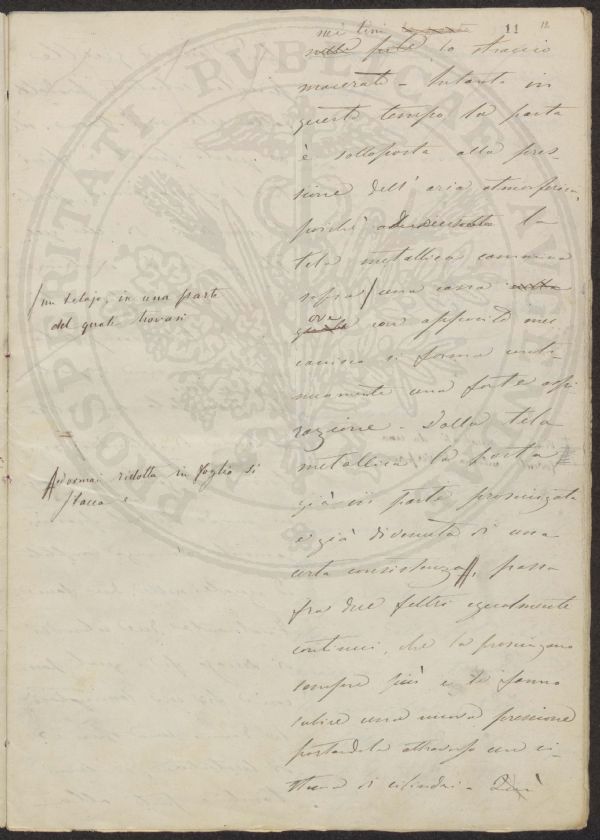 nei tini
11 12
nelle pile lo straccio
macerato - Intanto in
questo tempo la pasta
è sottoposta alla pres-
sione dell'aria atmosferica,
poichè la
tela metallica cammina
sopra / una cassa
ove con apposito mec
canismo si forma conti-
nuamente una forte aspi
razione - Dalla tela
metallica la pasta
già in parte prosciugata
e già divenuta di una
certa consistenza, passa
fra due feltri egualmente
continui, che la prosciugano
sempre più e le fanno
subire una nuova pressione
portandola attraverso un si-
stema di cilindri -
/ un telajo, in una parte
del quale trovasi
ed ormai ridotta in foglio si
stacca e
PROSPERITATI PUBLICAE